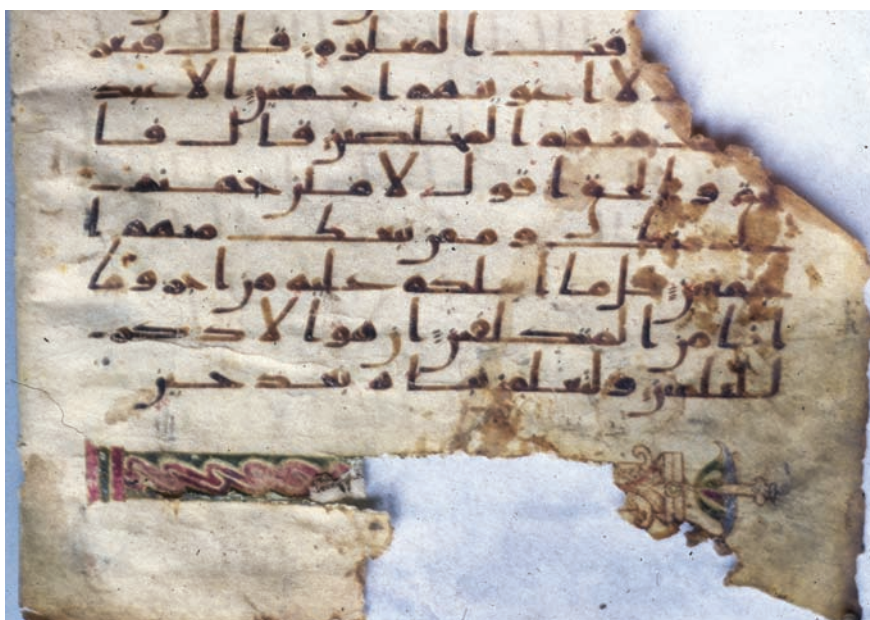 قت المعلوم قال فبعز
لاغوينهم اجمعين الا عبد
منهم المخلصين قال فا
لحق والحق اقول لاملن جهنم
منك وممن تبعك منهم ا
جمعين قل ما اسلكم عليه من اجر وما
انا من المتكلفين ان هو الا ذكر
للعلمين ولتعلمن نباه بعد حين